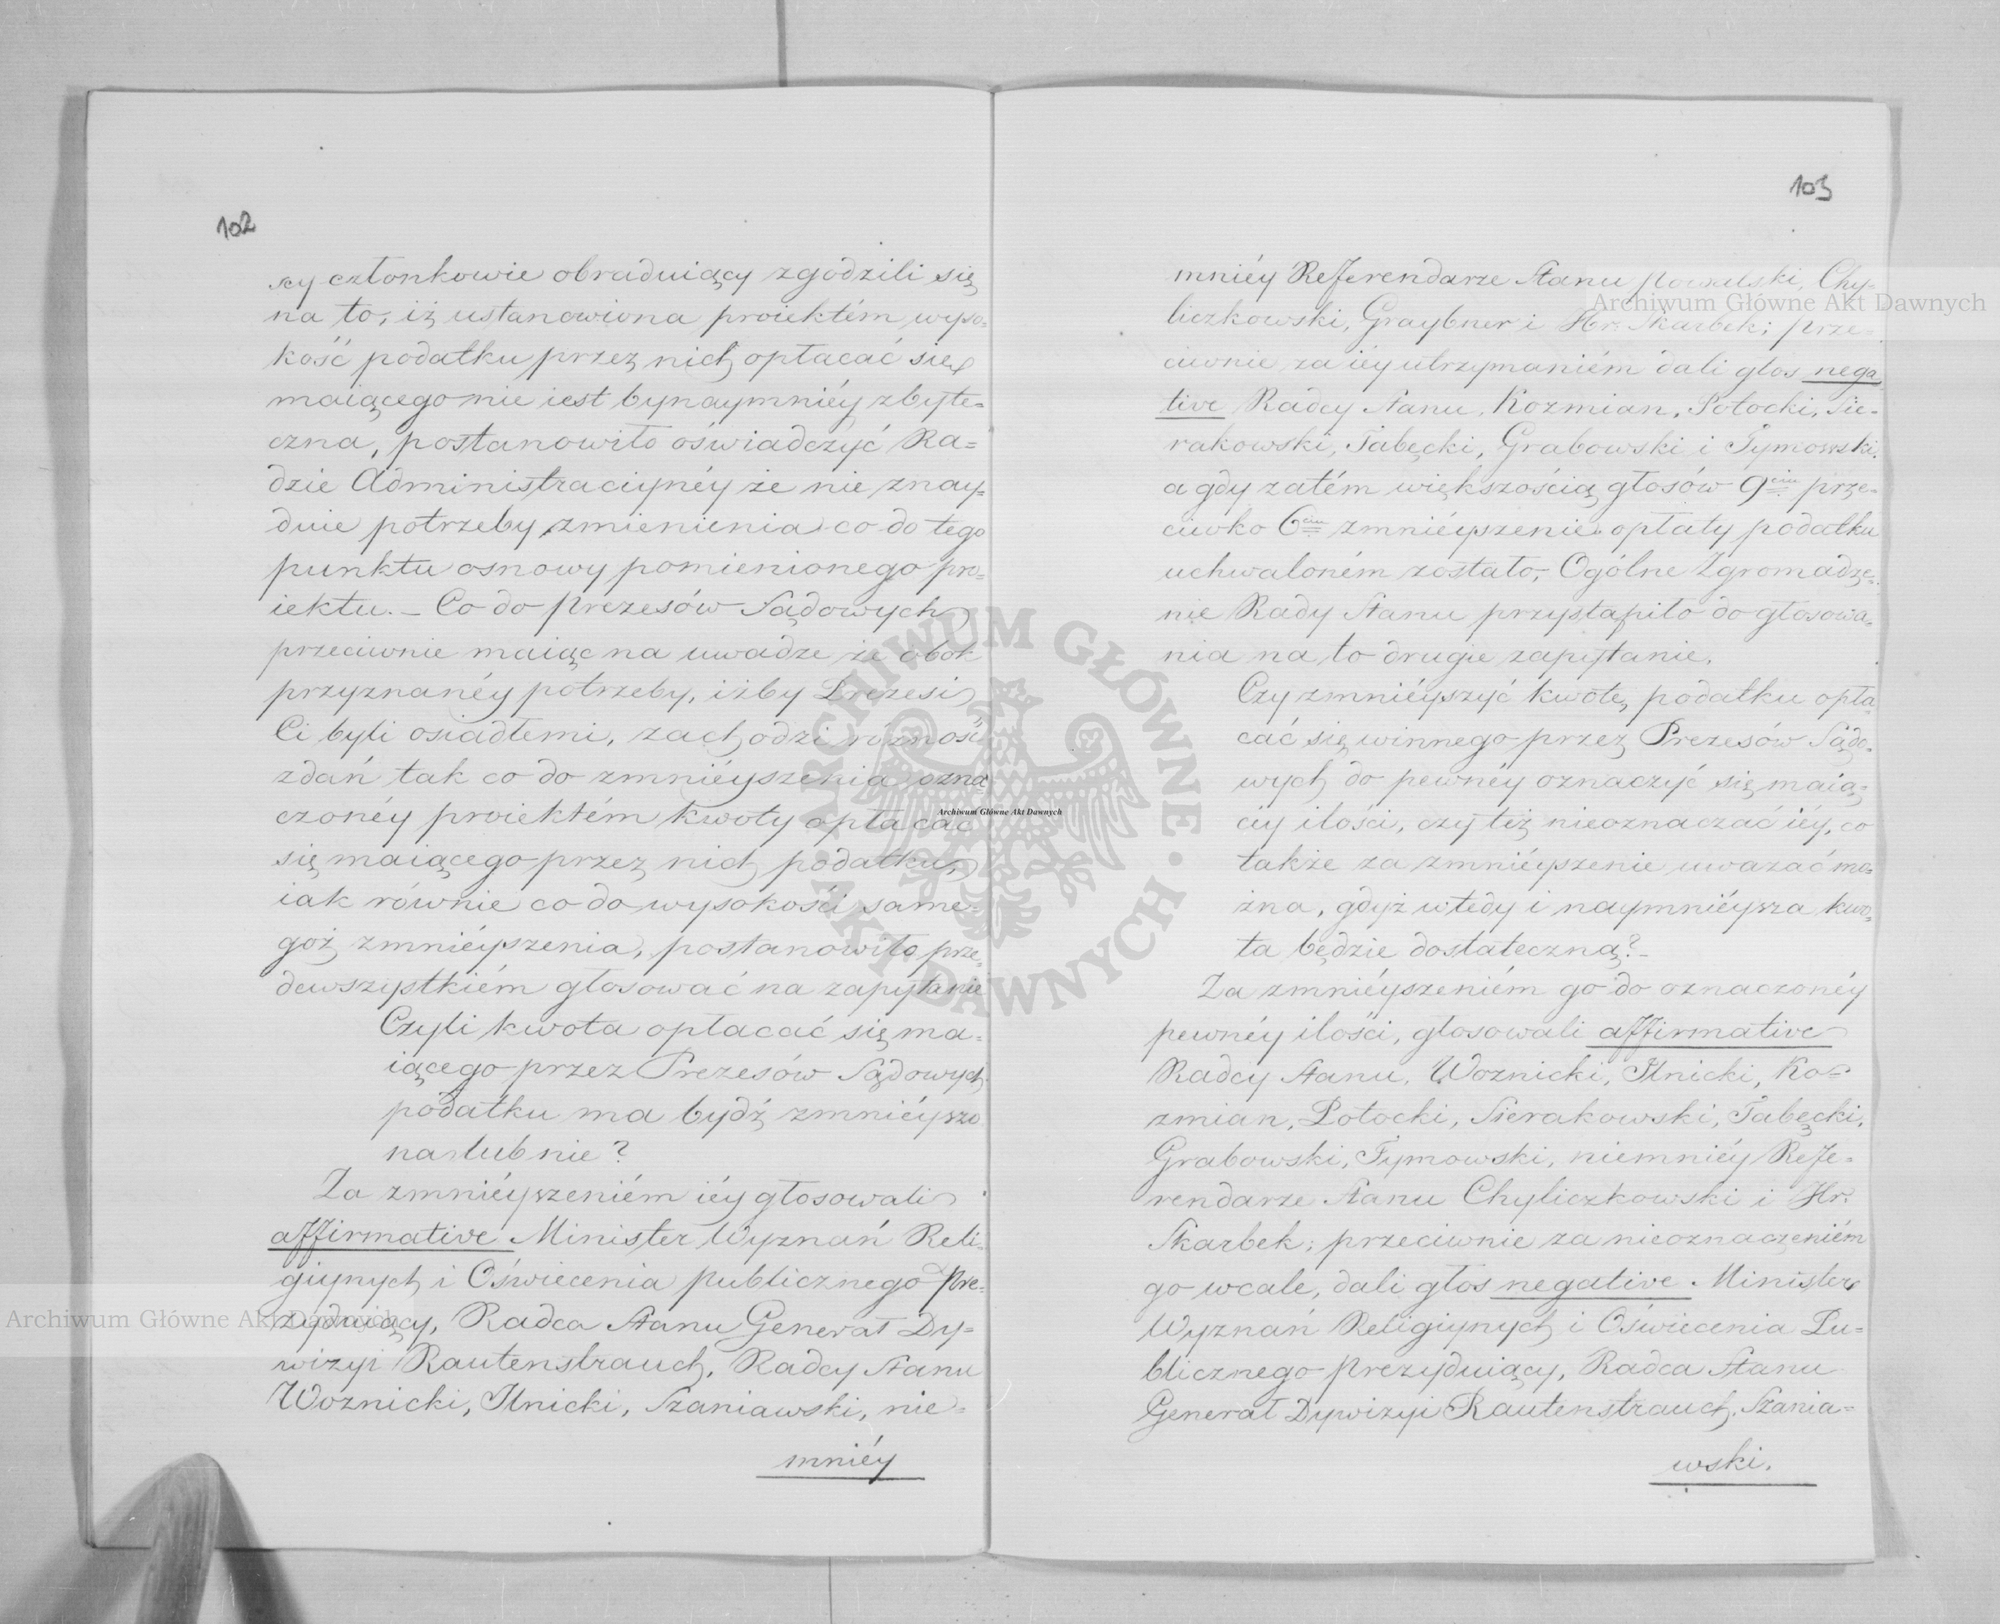 102
scy członkowie obraduiący zgodzili się
na to, iż ustanowiona proiektém wyso-
kość podatku przez nich opłacać się
maiącego nie iest bynaymniéy zbyte-
czna, postanowiło oświadczyć Ra-
dzie Administracyinéy że nie znay-
duie potrzeby zmienienia co do tego
punktu osnowy pomienionego pro-
iektu. – Co do Prezesów Sądowych
przeciwnie maiąc na uwadze że obok
przyznanéy potrzeby, iżby Prezesi
Ci byli osiadłemi, zachodzi różność
zdań tak co do zmniéyszenia ozna
czonéy proiektém kwoty opłacać
się maiącego przez nich podatku,
iak równie co do wysokości same-
goż zmniéyszenia, postanowiło prze-
dewszystkiém głosować na zapytanie
Czyli kwota opłacać się ma-
iącego przez Prezesów Sądowych
podatku ma bydź zmniéyszo
na lub nie?
Za zmniéyszeniém iéy głosowali
affirmative Minister Wyznań Reli-
giynych i Oświecenia publicznego Pre-
zyduiący, Radca Stanu Generał Dy-
wizyi Rautenstrauch, Radcy Stanu
Woznicki, Ilnicki, Szaniawski, nie-
mniéy
103
mniéy Referendarze Stanu Chy-
liczkowski, Graybner i Hr. Skarbek; prze-
ciwnie za iéy utrzymaniém dali głos nega
tive Radcy Stanu, Kozmian, Potocki, Sie-
rakowski, Tabęcki, Grabowski i Tymowski.
a gdy zatém większością głosów 9ciu prze-
ciwko 6ciu zmniéyszenie opłaty podatku
uchwaloném zostało, – Ogólne Zgromadze-
nie Rady Stanu przystąpiło do głosowa-
nia na to drugie zapytanie.
Czy zmniéyszyć kwotę podatku opła-
cać się winnego przez Prezesów Sądo-
wych do pewnéy oznaczyć się maią-
céy ilości, czy też nieoznaczać iéy, co
także za zmniéyszenie uważać mo-
żna, gdyż wtedy i naymniéysza kwo-
ta będzie dostateczną? –
Za zmniéyszeniém go do oznaczonéy
pewnéy ilości, głosowali affirmative
Radcy Stanu, Woznicki, Ilnicki, Ko-
zmian, Potocki, Sierakowski, Tabęcki,
Grabowski, Tymowski, niemniéy Refe-
rendarze Stanu Chyliczkowski i Hr.
Skarbek; przeciwnie za nieoznaczeniém
go wcale, dali głos negative. Minister
Wyznań Religiynych i Oświecenia Pu-
blicznego Prezyduiący, Radca Stanu
Generał Dywizyi Rautenstrauch, Szania-
wski.
Archiwum Główne Akt Dawnych
Archiwum Główne Akt Dawnych
Archiwum Główne Akt Dawnych
ARCHIWUM GŁÓWNE AKT DAWNYCH